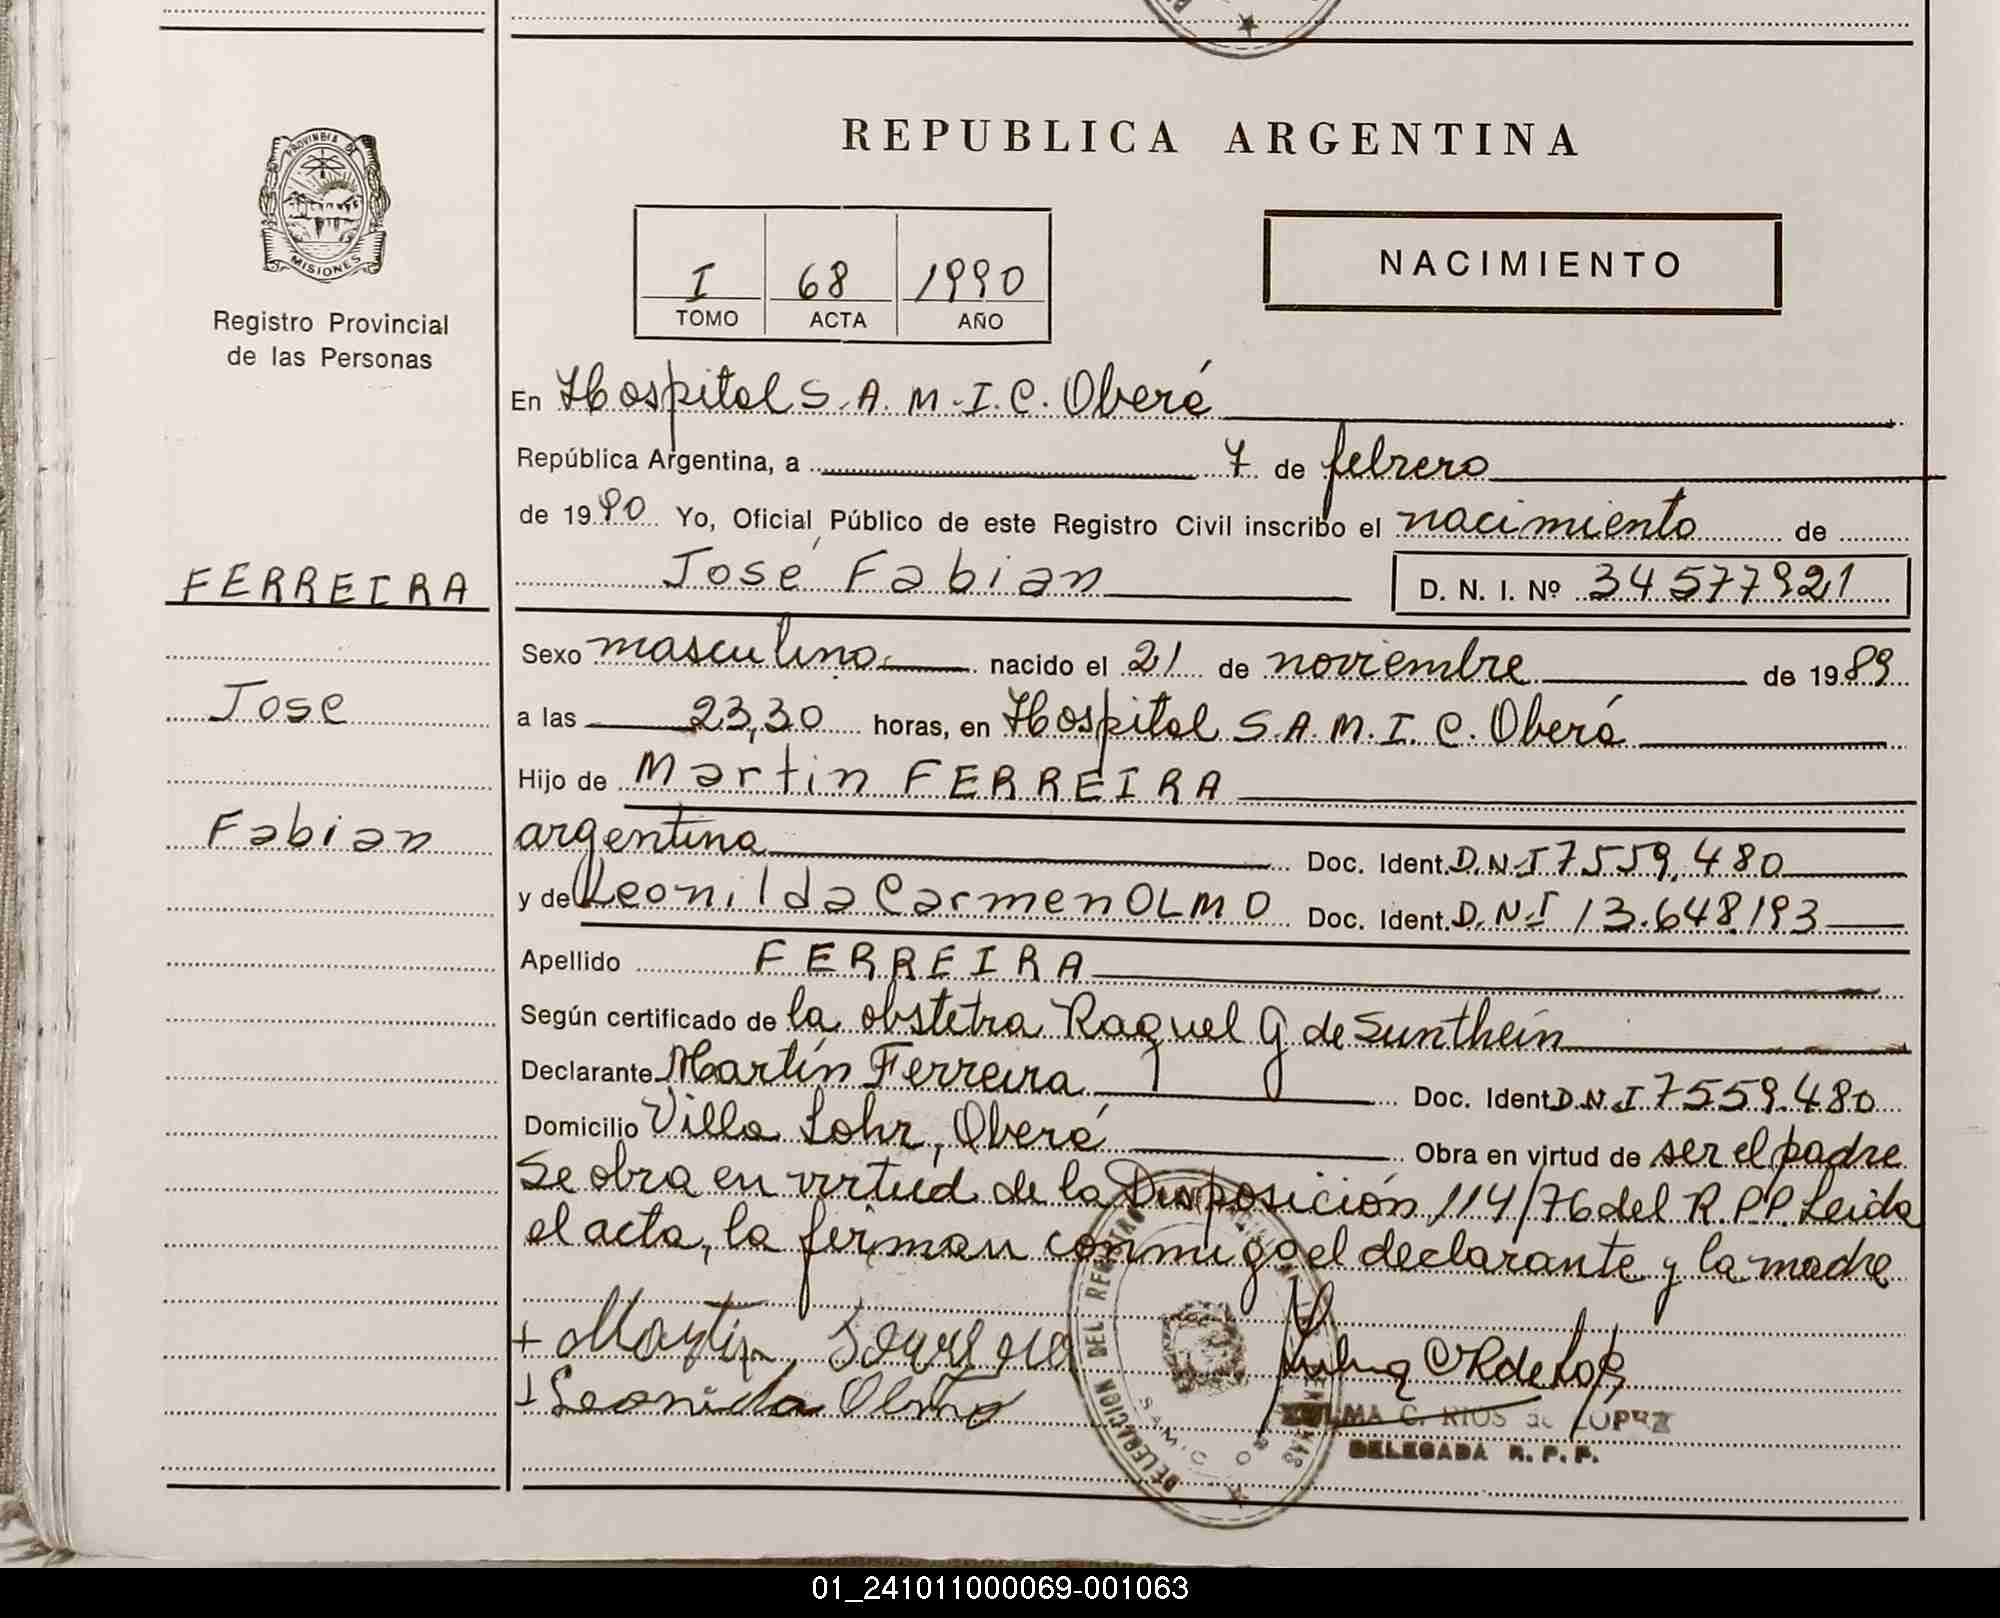 REPUBLICA ARGENTINA
PROVINCIA DE
MISIONES
Registro Provincial
de las Personas
I 68 1990
TOMO ACTA AÑO
NACIMIENTO
En Hospital S.A.M.I.C. Oberá
República Argentina, a 7 de febrero
de 1990 Yo, Oficial Público de este Registro Civil inscribo el nacimiento de
FERREIRA
José Fabian D. N. I. Nº 34577921
Sexo masculino nacido el 21 de noviembre de 1989
Jose
a las 23,30 horas, en Hospital S.A.M.I.C. Oberá
Hijo de Martin FERREIRA
Fabian
argentina Doc. Ident. D.N.I 7559.480
y de Leonilda Carmen OLMO Doc. Ident. D.N.I 13.648.193
Apellido FERREIRA
Según certificado de la obstetra Raquel G de Sunthein
Declarante Martín Ferreira Doc. Ident D.N.I 7559.480
Domicilio Villa Lohr, Oberá Obra en virtud de ser el padre
Se obra en virtud de la Disposición 114/76 del R.P.P. Leida
el acta, la firman conmigo el declarante y la madre
+ Martin
+ Leonida Olmo
ZULMA C. RIOS de LOPEZ
DELEGADA R. P. P.
DELEGACION DEL REGISTRO
01_241011000069-001063